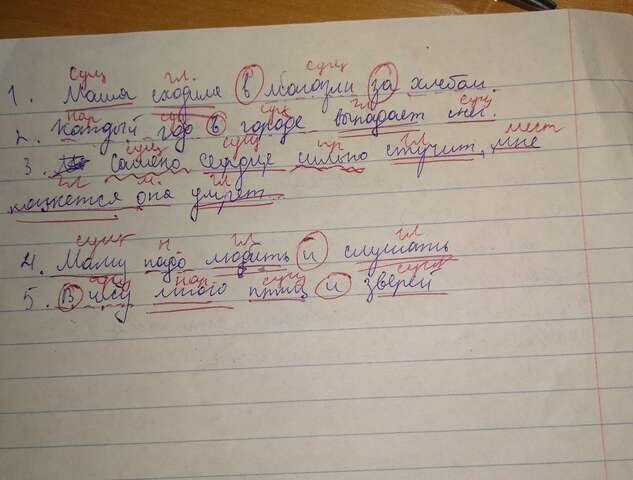 сущ гл. сущ
1. Маша сходила в магазин за хлебом.
нар сущ сущ гл сущ
2. Каждый год в городе выпадает снег.
сущ сущ пр гл мест
3. сердце сильно стучит, мне
гл м. гл
кажется она умрет.
сущ н гл гл
4. Маму надо любить и слушать
сущ нар сущ сущ
5. В лесу много птиц и зверей